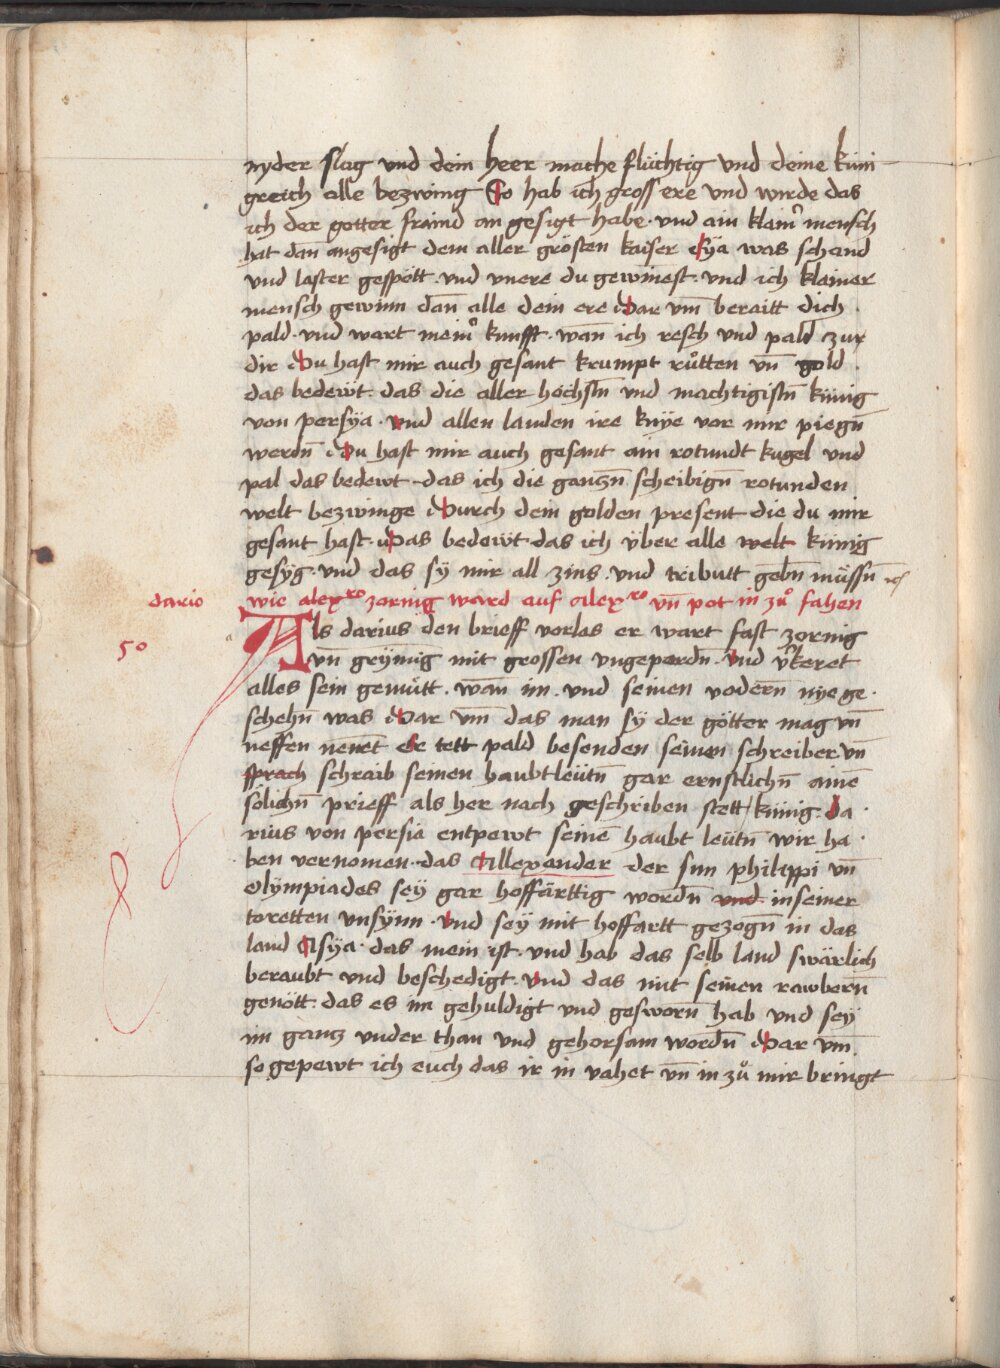 nyder slag vnd dein heer mache flüchtig vnd deine küni
greich alle bezwing So hab ich gross ere vnd wirde das
ich der gotter fraind an gesigt habe · vnd ain klain͛ mensch
hat dan̄ angesigt dem aller grösten kaiser Eya was schand
vnd laster gespött · vnd vnere du gewinest · vnd ich klainer
mensch gewinn dan̄ alle dein ere Dar vm̄ beraitt dich
pald · vnd wart mein͛ kunfft · wan̄ ich resch vnd pald zux
dir Du hast mir auch gesant krumpt růtten vn̄ gold
das bedewt · das die aller hochstn̄ vnd machtigistn̄ künig
von persÿa · vnd allen landen ire knÿe vor mir piegn̄
werdn̄ Du hast mir auch gesant ain rotundt kugel vnd
pal das bedewt · das ich die ganczn̄ scheibign̄ rotunden
welt bezwinge Durch dem golden present die du mir
gesant hast · Das bedewt · das ich über alle welt künig
gesÿg · vnd das sÿ mir all zins · vnd tributt gebn̄ müssn̄
dario wie alexro zornig ward auf Alexro vn̄ pot in zů fahen
Als darius den brieff vorlas er wart fast zornig
50 vn̄ grÿmig mit grossen vngeperdn̄ · vnd v͛keret
alles sein gemütt · wan̄ im · vnd seinen vodern̄ nye ge·
schehn̄ was Dar vm̄ das man sÿ der götter mag vn̄
neffen nen̄et Er tett pald besenden seinen schreiber vn̄
sprach schraib seinen haubtleütn̄ gar ernstlichn̄ ainē
sölichn̄ prieff als her nach geschriben stett künig · Da·
rius von persia entpewt seinē haubt leütn̄ wir ha·
ben vernomen · das Allexander der sun philippi vn̄
Olÿmpiades seÿ gar hoffärttig wordn̄ vnd in seiner
toretten vnsÿnn · vnd seÿ mit hoffartt gezogn̄ in das
land Asÿa · das mein ist · vnd hab das selb land swärlich
beraubt vnd beschedigt · vnd das mit seinen rawbern̄
genött · das es im gehuldigt vnd gesworn̄ hab vnd seÿ
im gancz vnder than vnd gehorsam wordn̄ Dar vm̄
so gepewt ich euch das ir in vahet vn̄ in zů mir bringt